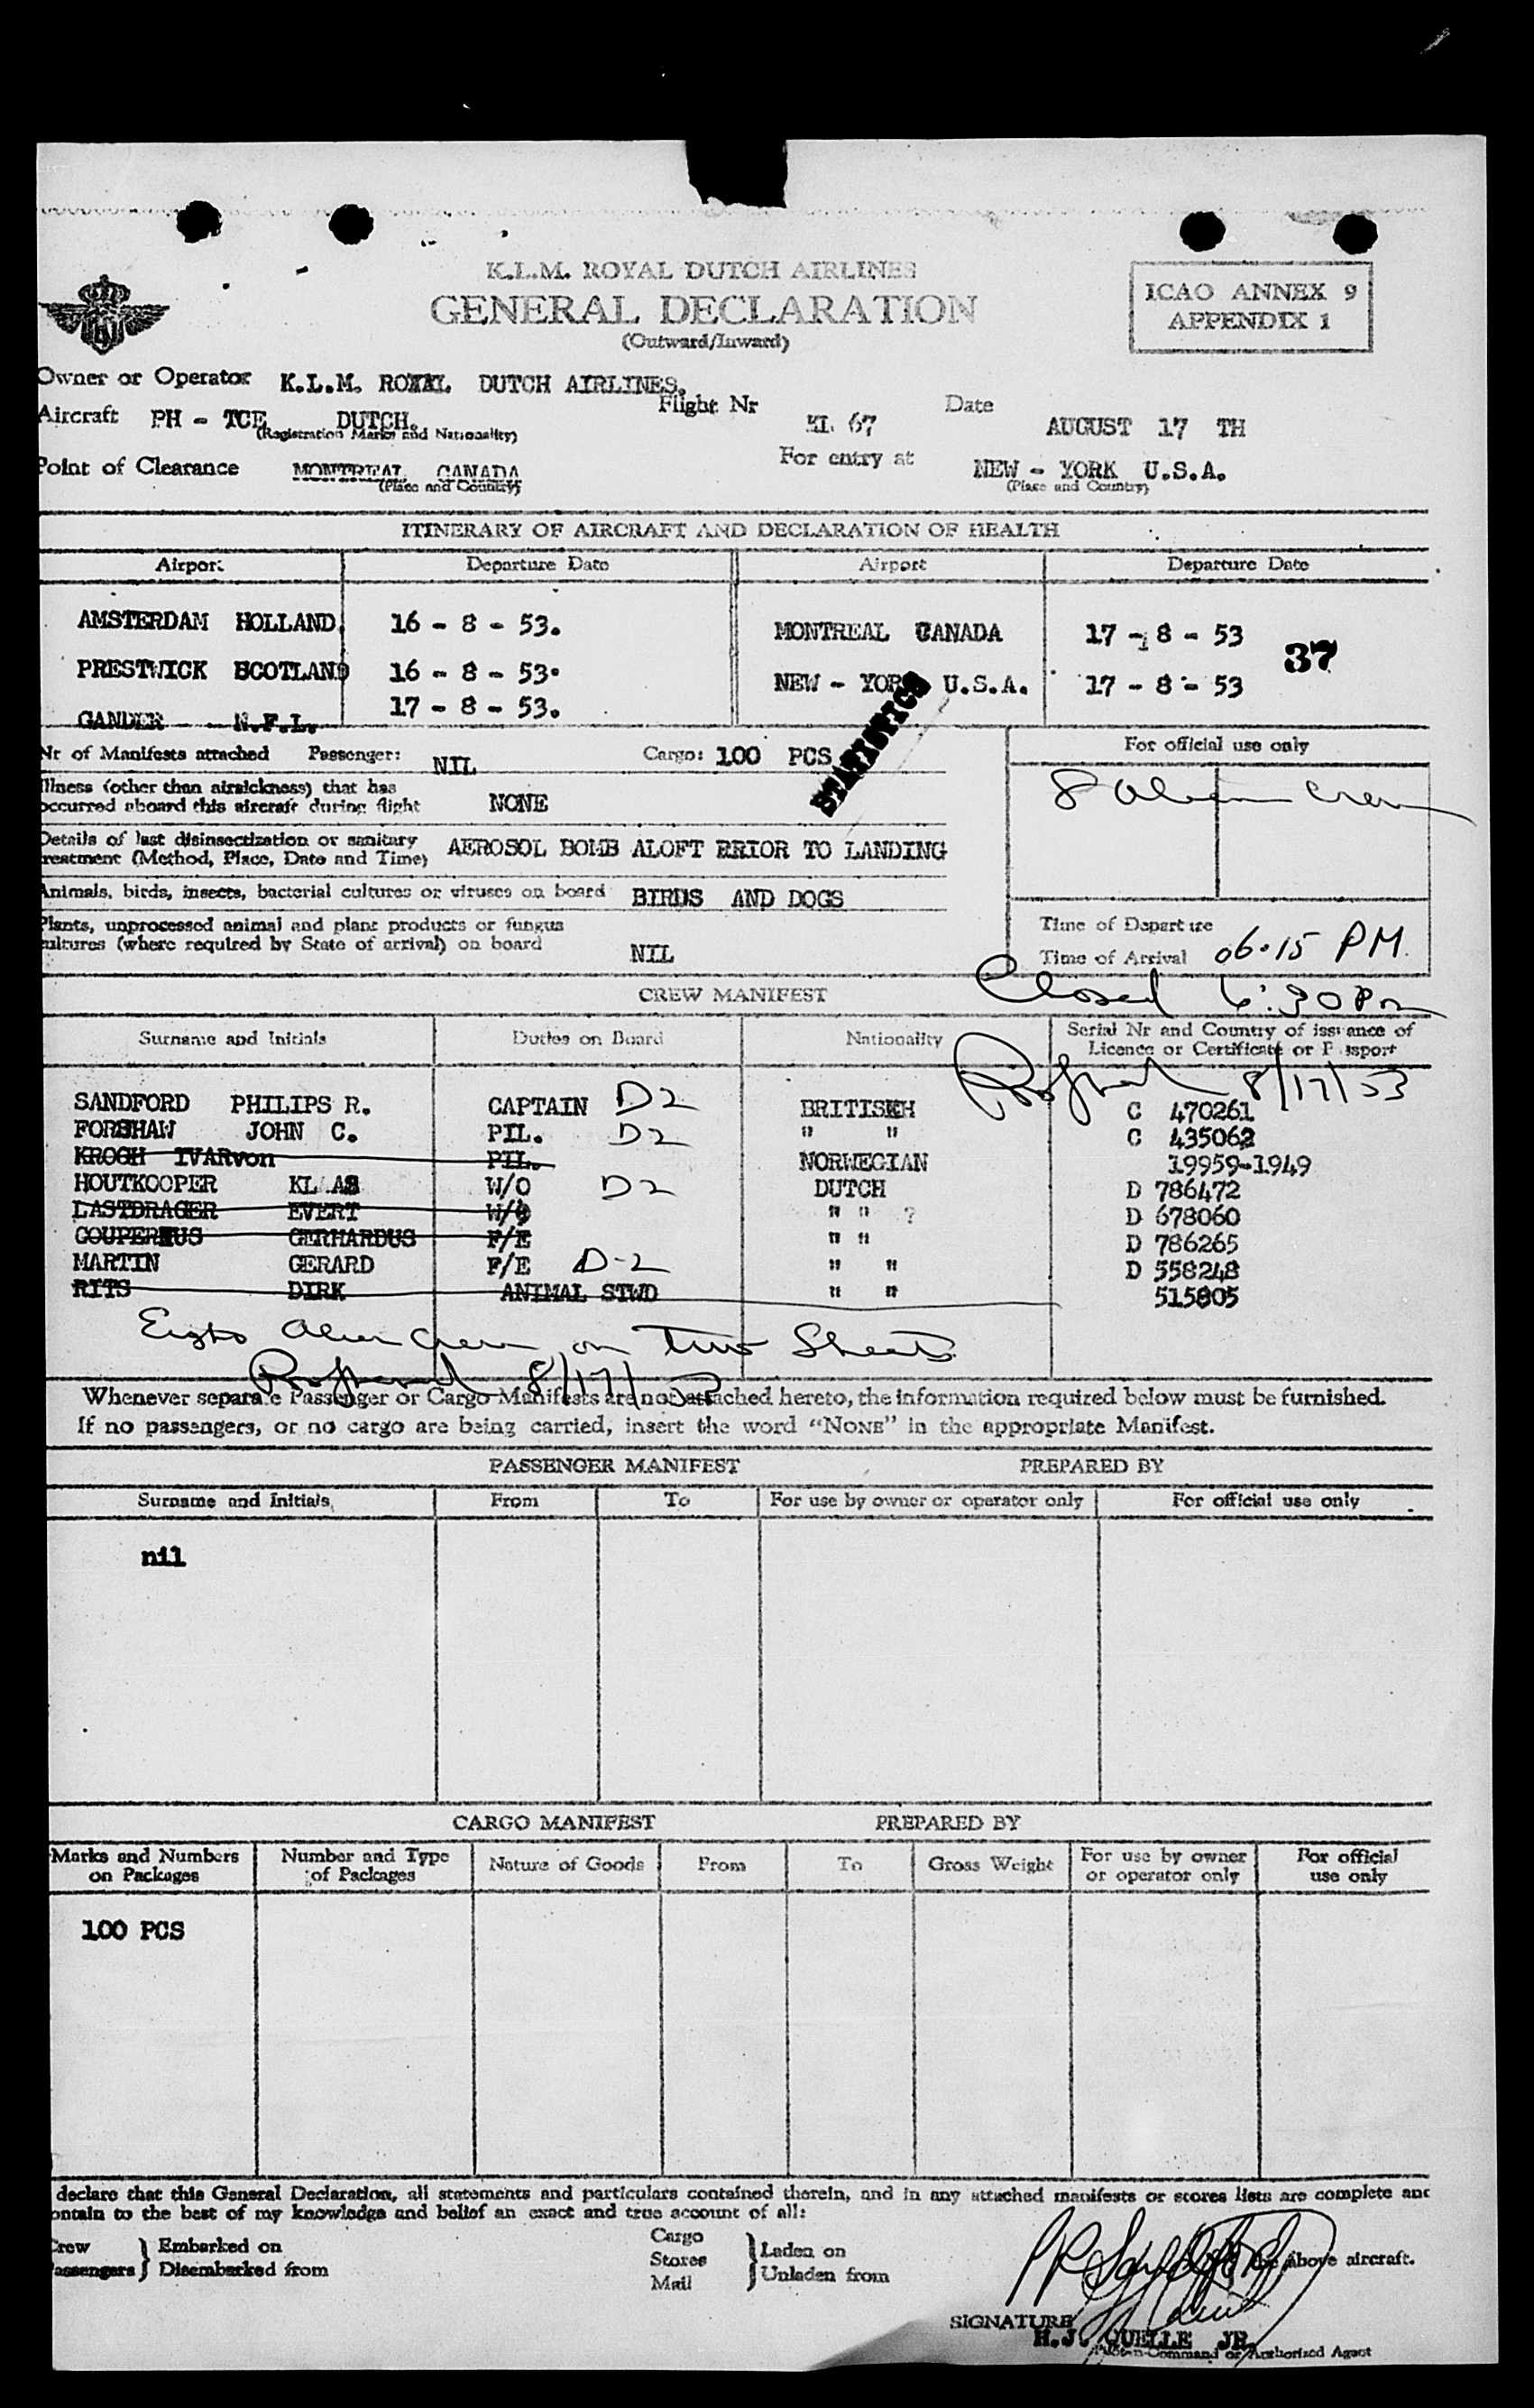 K.L.M. ROYAL DUTCH AIRLINES
GENERAL DECLARATION
(Outward/Inward)
ICAO ANNEX 9
APPENDIX 1
Owner or Operator K.L.M. ROYAL DUTCH AIRLINES.
Aircraft PH - TCE DUTCH. Flight Nr KL 67 Date AUGUST 17 TH
(Registration Marks and Nationality)
Point of Clearance MONTREAL CANADA For entry at NEW - YORK U.S.A.
(Place and Country) (Place and Country)
ITINERARY OF AIRCRAFT AND DECLARATION OF HEALTH
Airport Departure Date Airport Departure Date
AMSTERDAM HOLLAND 16 - 8 - 53. MONTREAL CANADA 17 - 8 - 53
PRESTWICK SCOTLAND 16 - 8 - 53. NEW - YORK U.S.A. 17 - 8 - 53 37
GANDER N.F.L. 17 - 8 - 53.
STATISTICS
Nr of Manifests attached Passenger: NIL Cargo: 100 PCS
For official use only
8 Alien Crew
illness (other than airsickness) that has
occurred aboard this aircraft during flight NONE
Details of last disinsectization or sanitary
treatment (Method, Place, Date and Time) AEROSOL BOMB ALOFT PRIOR TO LANDING
Animals, birds, insects, bacterial cultures or viruses on board BIRDS AND DOGS
Plants, unprocessed animal and plant products or fungus
cultures (where required by State of arrival) on board NIL
Time of Departure
Time of Arrival 06.15 PM.
Closed 6:30 Pm
CREW MANIFEST
Surname and Initials Duties on Board Nationality Serial Nr and Country of issuance of
Licence or Certificate or Passport
8/17/53
SANDFORD PHILIPS R. CAPTAIN D2 BRITISH C 470261
FORSHAW JOHN C. PIL. D2 " " C 435062
KROGH IVARvon PIL. NORWEGIAN 19959-1949
HOUTKOOPER KLAAS W/O D2 DUTCH D 786472
LASTDRAGER EVERT W/O " " ? D 678060
COUPERUS GERHARDUS F/E " " D 786265
MARTIN GERARD F/E D-2 " " D 558248
RITS DIRK ANIMAL STWD " " 515805
Eight Alien Crew on Two Sheets
8/17/53
Whenever separate Passenger or Cargo Manifests are not attached hereto, the information required below must be furnished.
If no passengers, or no cargo are being carried, insert the word “NONE” in the appropriate Manifest.
PASSENGER MANIFEST PREPARED BY
Surname and Initials From To For use by owner or operator only For official use only
nil
CARGO MANIFEST PREPARED BY
Marks and Numbers on Packages Number and Type of Packages Nature of Goods From To Gross Weight For use by owner or operator only For official use only
100 PCS
declare that this General Declaration, all statements and particulars contained therein, and in any attached manifests or stores lists are complete and
contain to the best of my knowledge and belief an exact and true account of all:
Crew Passengers } Embarked on Disembarked from Cargo Stores Mail } Laden on Unladen from the above aircraft.
SIGNATURE
H.J. QUELLE JR.
Pilot-in-Command or Authorized Agent